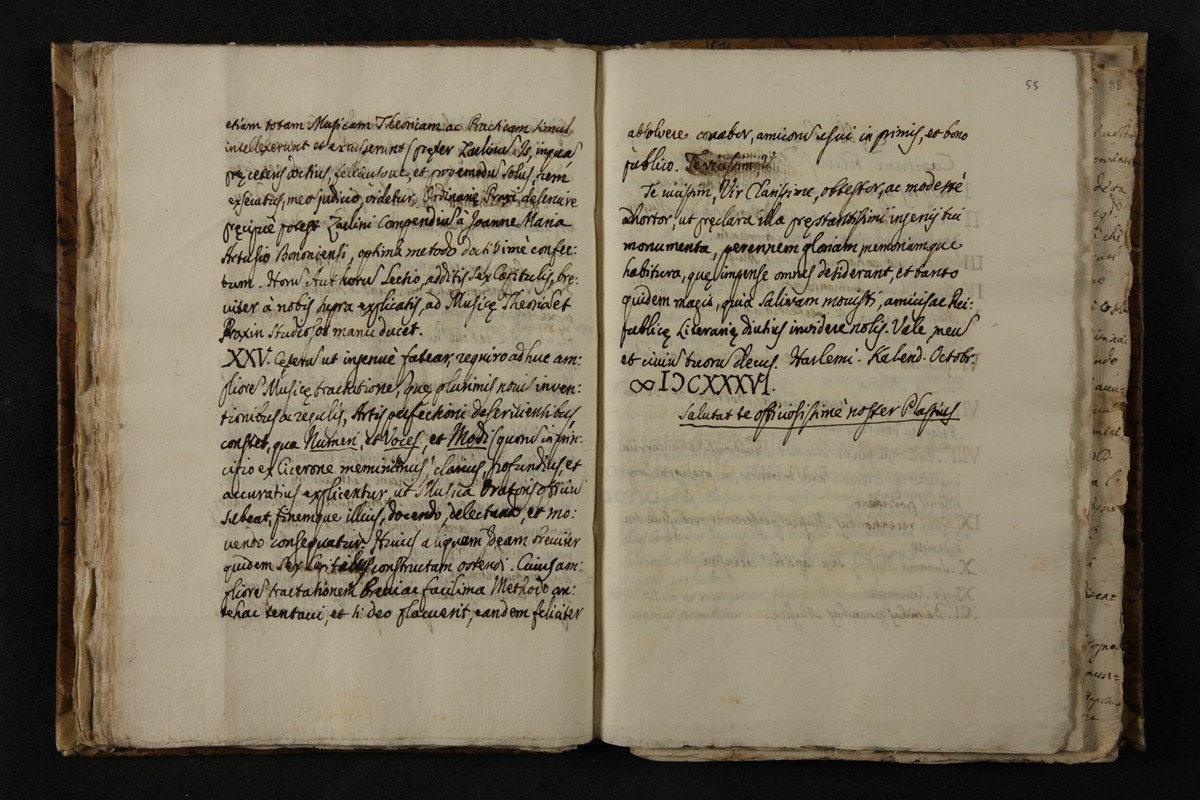 etiam totam Musicam Theoriam ac Practicam simul
intellexerunt et excusserunt præter Zarlinū. Is, inquā
pręceteris doctius, feliciusque, et propemodū solus, rem
executus, meo judicio, videtur. Ordinarię Praxi deservire
pręcipuè potest Zarlini Compendiū à Joanne Maria
Artusio Bononiensi, optima metodo doctissimè confec:
tum. Horū Authorū Lectio, additis sex Capitulis, bre:
viter à nobis supra explicatis, ad Musicę Theoriā et
Praxin studiosos manuducet.
XXV. Cęterū ut ingenuè fatear, requiro adhuc am:
pliorē Musicę tractationē, quę plurimis novis inven:
tionibus ac regulis, Artis perfectioni deservientibus,
constet, qua Numeri, et Voces, et Modi, quorū in prin:
cipio ex Cicerone meminimus, clarius, profundius, et
accuratius explicentur, ut Musica Oratoris officiū
subeat, finemque illius, docendo, delectando, et mo:
vendo consequatur. Huius aliquam Ideam breviter
quidem sex Capitulis constructam ostendi. Cuius am:
pliorē tractationem brevi ac facilima Methodo an:
tehac tentavi, et si deo placuerit, eandem feliciter
55
absolvere conabor, amicorū usui in primis, et bono
publico. Te vicissim V
Te vicissim, Vir Clarissime, obtestor, ac modestè
adhortor, ut pręclara illa pręstantissimi ingenij tui
monumenta, perennem gloriam memoriamque
habitura, quę impense omnes desiderant, et tanto
quidem magis, quia salivam movisti, amicis ac Rei:
publicę Literarię diutius invidere nolis. Vale meū
et civiū tuorū decus. Harlemi. Kalend. Octobr.
∞ IƆCXXXVI.
Salutat te officiosissimè noster Plasius